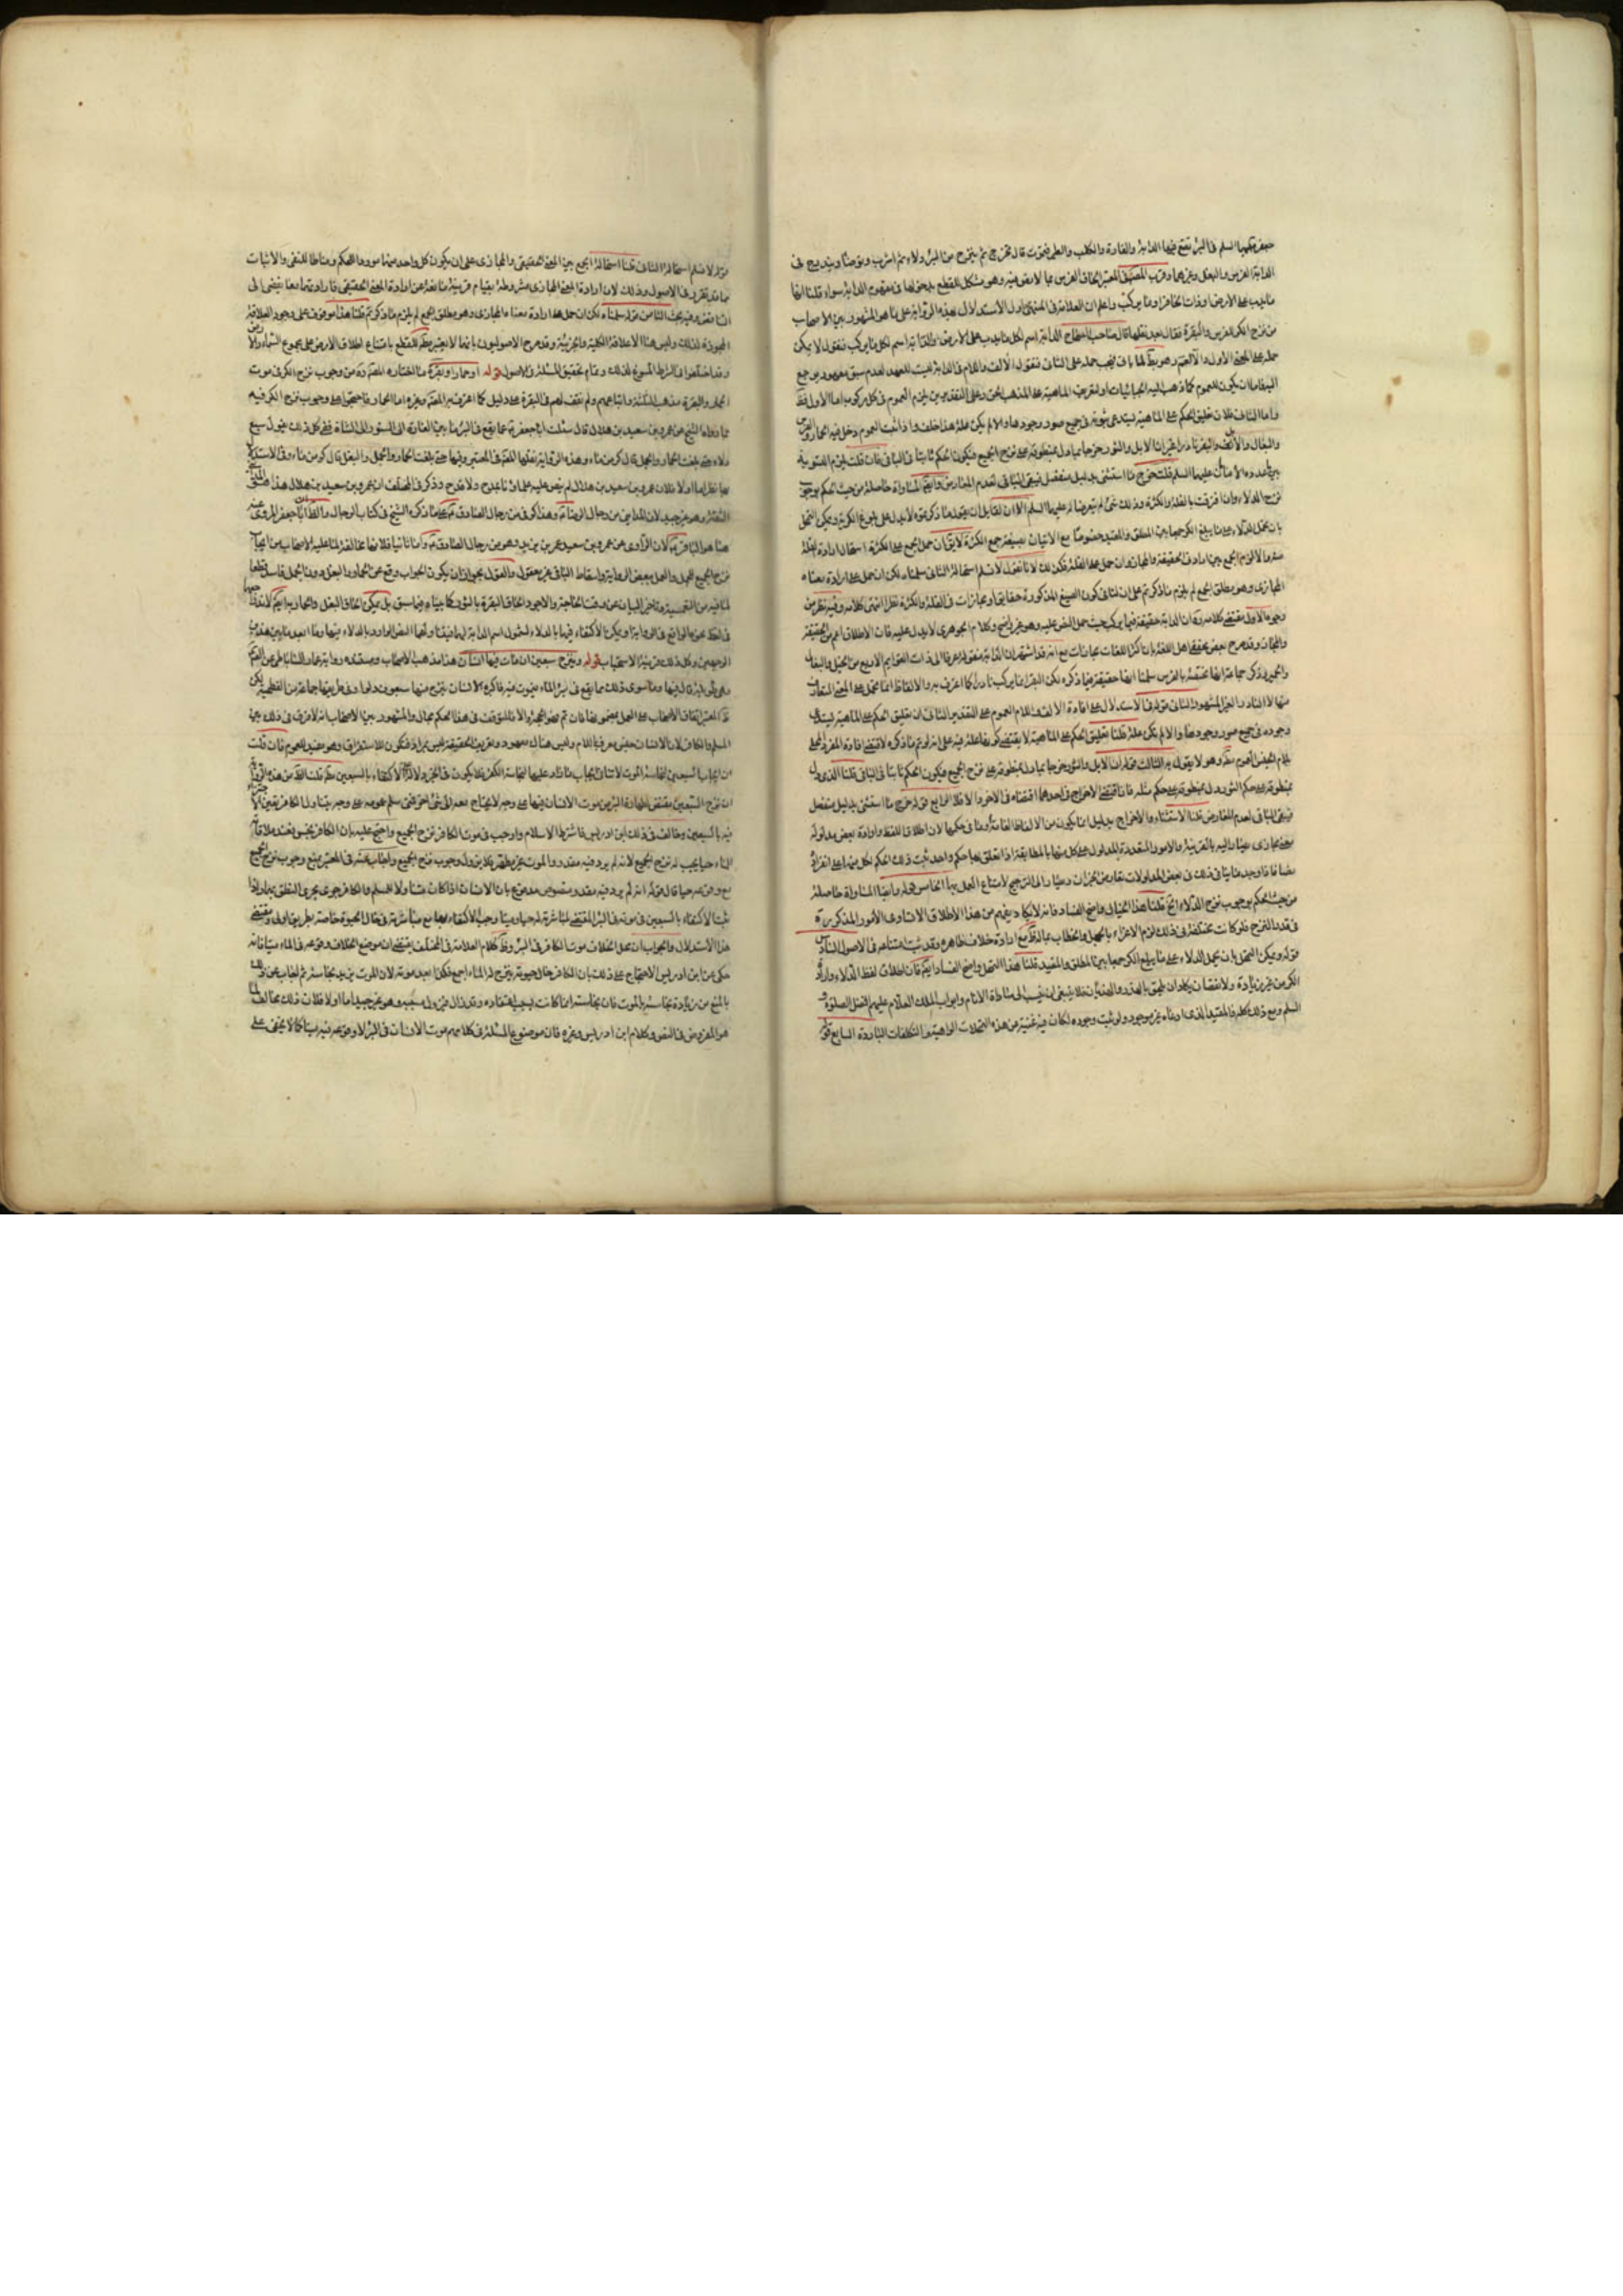 جعفر عليهما السلم في البئر تقع فيها الدابة والفارة والكلب والطير فيموت قال يخرج ثم ينزح من البئر دلاء ثم اشرب وتوضا ويندرج في
الدابة الفرس والبغل وغيرهما وقرب المصنف في المعتبر الحاق الفرس بما لا نص فيه وهو مشكل للقطع بدخولها في مفهوم الدابة سواء قلنا انها
ما يدب على الارض او ذات الحافر او ما يركب واعلم ان العلامة في المنتهى حاول الاستدلال بهذه الرواية على ما هو المشهور بين الاصحاب
من نزح الكر للفرس والبقرة فقال بعد نقلها قال صاحب الصحاح الدابة اسم لكل ما يدب على الارض والدابة اسم لكل ما يركب فنقول لا يمكن
حمله على المعنى الاول والا لعم وهو بط لما ياتي فيجب حمله على الثاني فنقول الالف واللام في الدابة ليست للعهد لعدم سبق معهود يرجع
اليه فاما ان يكون للعموم كما ذهب اليه الجبائيان او لتعريف الماهية على المذهب الحق وعلى التقديرين يلزم العموم في كل مركوب اما الاول فظ
واما الثاني فلان تعليق الحكم على الماهية يستدعي ثبوته في جميع صور وجودها والا لم يكن علة هذا خلف واذا ثبت العموم دخل فيه الحمار والفرس
والبغال والابل والبقر نادرا غير ان الابل والثور خرجا بما دل بمنطوقه على نزح الجميع فيكون الحكم ثابتا في الباقي فان قلت يلزم التسوية
بين ما عدده الامام عليه السلم قلت خرج ما استثنى بدليل منفصل فيبقى الباقي لعدم المعارض وايضا المساواة حاصلة من حيث الحكم بوجوب
نزح الدلاء وان افترقت بالقلة والكثرة وذلك شئ لم يتعرض له عليه السلم الا ان لقائل ان يقول ما ذكرتموه لا يدل على بلوغ الكرية ويمكن التمحل
بان يحمل الدلاء على ما يبلغ الكر جمعا بين المطلق والمقيد خصوصا مع الاتيان بصيغة جمع الكثرة لا يقال ان حمل الجمع على الكثرة استحال ارادة القلة
منه والا لزم الجمع بين ارادتي الحقيقة والمجاز وان حمل على القلة فكذلك لانا نقول لا نسلم استحالة الثاني سلمناه لكن ان حمل على ارادة معناه
المجازي وهو مطلق الجمع لم يلزم ما ذكرتم على ان لنا في كون الصيغ المذكورة حقايق او مجازات في القلة والكثرة نظر انتهى كلامه وفيه نظر من
وجوه الاول مقتضى كلامه ره ان الدابة حقيقة فيما يركب حيث حمل النص عليه وهو غير واضح وكلام الجوهري لا يدل عليه فان الاطلاق اعم من الحقيقة
والمجاز وقد صرح بعض محققي اهل اللغة بان اكثر اللغات مجازات مع انه قد اشتهر ان الدابة منقولة عرفا الى ذات القوايم الاربع من الخيل والبغال
والحمير وذكر جماعة انها مختصة بالفرس سلمنا انها حقيقة فيما ذكره لكن البقر انما يركب نادرا كما اعترف به والالفاظ انما تحمل على المعنى المتعارف
منها لا النادر الغير المشهور الثاني قوله في الاستدلال على افادة الالف واللام العموم على التقدير الثاني ان تعليق الحكم على الماهية يستدعي
وجوده في جميع صور وجودها والا لم يكن علة قلنا تعليق الحكم على الماهية لا يقتضي كونها علة فيه على انه لو تم ما ذكره لاقتضى افادة المفرد المحلى
بلام الجنس العموم مط وهو لا يقول به الثالث قوله ان الابل والثور خرجا بما دل بمنطوقه على نزح الجميع فيكون الحكم ثابتا في الباقي قلنا الذي دل
بمنطوقه على حكم الثور دل بمنطوقه على حكم مثله فاما اقتضى الاخراج في احدهما اقتضاه في الاخر والا فلا الرابع قوله خرج ما استثنى بدليل منفصل
فيبقى الباقي لعدم المعارض قلنا الاستثناء والاخراج بدليل انما يكون من الالفاظ العامة وما في حكمها لان اطلاق اللفظ وارادة بعض مدلوله
معنى مجازي يصار اليه بالقرينة والامور المتعددة المدلول على كل منها بالمطابقة اذا تعلق بها حكم واحد ثبت ذلك الحكم لكل منها على انفراده
نصا فاذا وجد ما ينافي ذلك في بعض المدلولات تعارض الخبران ويصار الى الترجيح لامتناع العمل بهما الخامس قوله وايضا المساواة حاصلة
من حيث الحكم بوجوب نزح الدلاء الخ قلنا هذا الخيال واضح الفساد فانه لا يكاد يفهم من هذا الاطلاق الا تساوي الامور المذكورة
في قدر النزح فلو كانت مختلفة في ذلك لزم الاغراء بالجهل والخطاب بما له ظ مع ارادة خلاف ظاهره وقد ثبت امتناعه في الاصول السادس
قوله ويمكن التمحل بان يحمل الدلاء على ما يبلغ الكر جمعا بين المطلق والمقيد قلنا هذا التمحل واضح الفساد ايضا فان اطلاق لفظ الدلاء وارادة
الكر من غير زيادة ولا نقصان يكاد ان يلحق بالهذر والهذيان فلا ينبغي ان ينسب الى سادة الانام وابواب الملك العلام عليهم افضل الصلوة و
السلم ومع ذلك كله فالمقيد الذي ادعاه غير موجود ولو ثبت وجوده لكان فيه غنية من هذه التمحلات الواهية والتكلفات الباردة السابع قوله
قوله لا نسلم استحالة الثاني قلنا استحالة الجمع بين المعنى الحقيقي والمجازي على ان يكون كل واحد منهما موردا للحكم ومناطا للنفي والاثبات
مما قد تقرر في الاصول وذلك لان ارادة المعنى المجازي مشروطة بقيام قرينة مانعة عن ارادة المعنى الحقيقي فارادتهما معا يفضي الى
التناقض وفيه بحث الثامن قوله سلمناه لكن ان حمل على ارادة معناه المجازي وهو مطلق الجمع لم يلزم ما ذكرتم قلنا هذا موقوف على وجود العلاقة
المجوزة لذلك وليس هنا الا علاقة الكلية والجزئية وقد صرح الاصوليون بانها لا يعتبر مطلقا للقطع بامتناع اطلاق الارض على مجموع السماء والارض
وقد اختلفوا في الشرط المسوغ لذلك وتمام تحقيق المسئلة في الاصول قوله او حمار او بقرة ما اختاره المصنف ره من وجوب نزح الكر في موت
الحمار والبقرة مذهب الثلثة واتباعهم ولم نقف لهم في البقرة على دليل كما اعترف به المصنف وغيره اما الحمار فاحتجوا على وجوب نزح الكر فيه
بما رواه الشيخ عن عمرو بن سعيد بن هلال قال سئلت ابا جعفر ع عما يقع في البئر ما بين الفارة الى السنور الى الشاة فقال كل ذلك يقول سبع
دلاء حتى بلغت الحمار والجمل قال كر من ماء وهذه الرواية نقلها المصنف في المعتبر وفيها حتى بلغت الحمار والجمل والبغل قال كر من ماء وفي الاستدلال
بها نظر اما اولا فلان عمرو بن سعيد بن هلال لم ينص عليه علماؤنا بمدح ولا قدح وذكر في المختلف ان عمرو بن سعيد بن هلال هذا هو المدايني
الثقة وهو غير جيد لان المدايني من رجال الرضا ع وهذا كوفي من رجال الصادق ع على ما ذكره الشيخ في كتاب الرجال والظ ان ابا جعفر المروي عنه
هنا هو الباقر ع لان الراوي عن عمرو بن سعيد عمر بن يزيد وهو من رجال الصادق ع واما ثانيا فلانها مخالفة لما عليه الاصحاب من ايجاب
نزح الجميع للجمل والعمل ببعض الرواية واسقاط الباقي غير معقول والقول بجواز ان يكون الجواب وقع عن الحمار والبغل دون الجمل فاسد قطعا
لما فيه من التعمية وتاخير البيان عن وقت الحاجة والاجود الحاق البقرة بالثور كما بيناه فيما سبق بل يمكن الحاق البغل والحمار به ايضا لاندفاع
في لفظ نحوه الواقع في الرواية ويمكن الاكتفاء فيهما بالدلاء لشمول اسم الدابة لهما فيتناولهما النص الوارد بالدلاء فيها وما ابعد ما بين هذين
الوجهين وكل ذلك قرينة الاستحباب قوله وبنزح سبعين ان مات فيها انسان هذا مذهب الاصحاب ومستنده رواية عمار الساباطي عن الصادق
ع قال فيها وما سوى ذلك مما يقع في بئر الماء فيموت فيه فاكبره الانسان ينزح منها سبعون دلوا وفي طريقها جماعة من الفطحية لكن
ظ المعتبر اتفاق الاصحاب على العمل بمضمونها فان تم فهو الحجة والا فللتوقف في هذا الحكم مجال والمشهور بين الاصحاب انه لا فرق في ذلك بين
المسلم والكافر لان الانسان جنس معرف باللام وليس هناك معهود وتعريف الحقيقة ليس بمراد فتكون للاستغراق وهو مفيد للعموم فان قلت
ان ايجاب السبعين لنجاسة الموت لا ينافي ايجاب ما زاد عليها لنجاسة الكفر
ان نزح السبعين مقتض لطهارة البئر من موت الانسان فيها على وجه لا يحتاج معه الى شئ اخر فمتى سلم عمومه على وجه يتناول الكافر تعين الاجتزاء
فيه بالسبعين وخالف في ذلك ابن ادريس فاشترط الاسلام واوجب في موت الكافر نزح الجميع واحتج عليه بان الكافر نجس فعند ملاقاته
الماء حيا يجب له نزح الجميع لانه لم يرد فيه مقدر والموت غير مطهر فلا يزول وجوب نزح الجميع واجاب عنه في المعتبر بمنع وجوب نزح الجميع
مع وقوعه حيا قال قوله انه لم يرد فيه مقدر ومنصوص مدفوع بان الانسان اذا كان متناولا للمسلم والكافر جرى مجرى النطق بهما واذا
ثبت الاكتفاء بالسبعين في موته في البئر المقتضي لمباشرته لها حيا وميتا وجب الاكتفاء بها مع مباشرته في حال الحيوة خاصة بطريق اولى ومقتضى
هذا الاستدلال والجواب ان محل الخلاف موت الكافر في البئر وظ كلام العلامة في المختلف يقتضي ان موضع الخلاف وقوعه في الماء ميتا فانه
حكى عن ابن ادريس الاحتجاج على ذلك بان الكافر حال حيوته ينزح له الماء اجمع فكذا بعد موته لان الموت يزيد نجاسته ثم اجاب عن ذلك
بالمنع من زيادة نجاسته بالموت فان نجاسته انما كانت بسبب اعتقاده وقد زال فيزول مسببه وهو غير جيد اما اولا فلان ذلك مخالف لما
هو المفروض في النص وكلام ابن ادريس وغيره فان موضوع المسئلة في كلامهم موت الانسان في البئر لا وقوعه فيه ميتا كما لا يخفى على